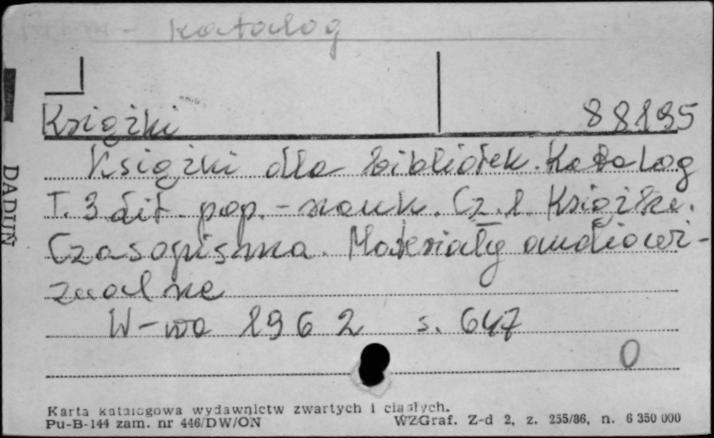 - katalog
Książki 88195
Książki dla bibliotek. Katalog
T. 3 Lit. pop.-nauk. Cz. 1. Książki.
Czasopisma. Materiały audiowi-
zualne
W-wa 1962 s. 647
0
DADUŃ
Karta katalogowa wydawnictw zwartych i ciągłych.
Pu-B-144 zam. nr 446/DW/ON WZGraf. Z-d 2, z. 255/86, n. 6 350 000